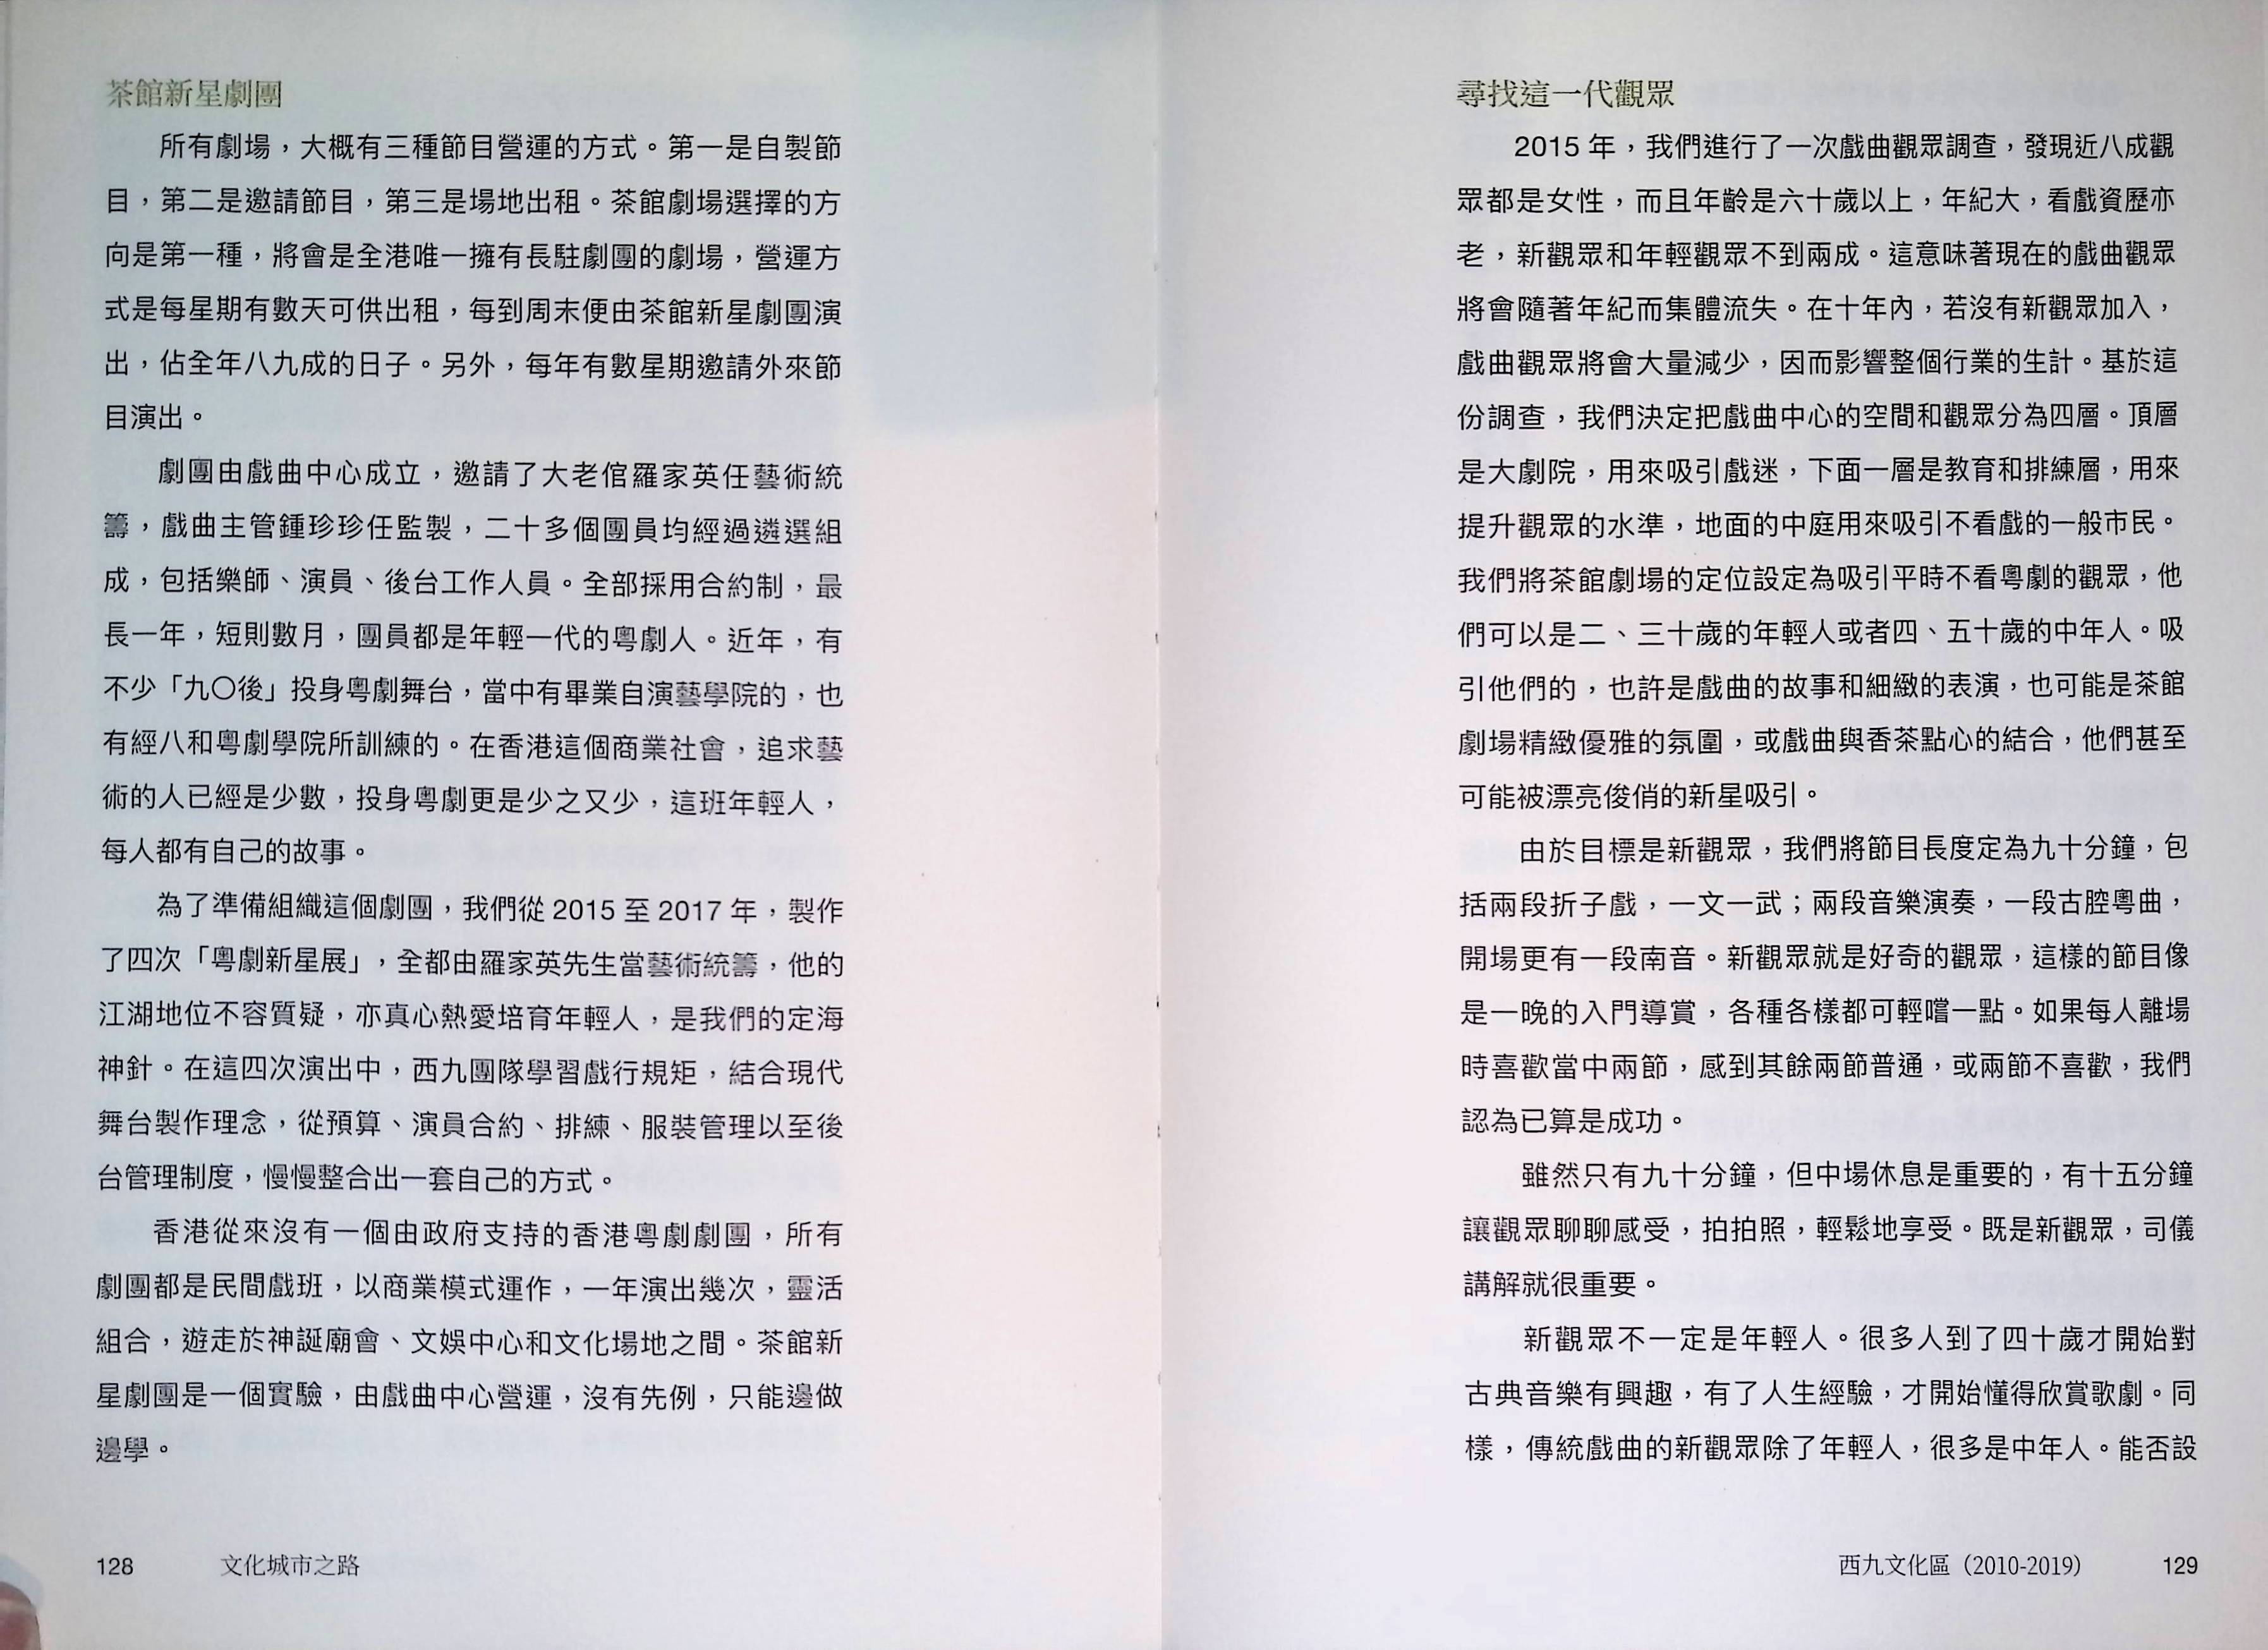 茶館新星劇團
所有劇場，大概有三種節目營運的方式。第一是自製節
目，第二是邀請節目，第三是場地出租。茶館劇場選擇的方
向是第一種，將會是全港唯一擁有長駐劇團的劇場，營運方
式是每星期有數天可供出租，每到周末便由茶館新星劇團演
出，佔全年八九成的日子。另外，每年有數星期邀請外來節
目演出。
劇團由戲曲中心成立，邀請了大老倌羅家英任藝術統
籌，戲曲主管鍾珍珍任監製，二十多個團員均經過遴選組
成，包括樂師、演員、後台工作人員。全部採用合約制，最
長一年，短則數月，團員都是年輕一代的粵劇人。近年，有
不少「九〇後」投身粵劇舞台，當中有畢業自演藝學院的，也
有經八和粵劇學院所訓練的。在香港這個商業社會，追求藝
術的人已經是少數，投身粵劇更是少之又少，這班年輕人，
每人都有自己的故事。
為了準備組織這個劇團，我們從 2015 至 2017 年，製作
了四次「粵劇新星展」，全都由羅家英先生當藝術統籌，他的
江湖地位不容質疑，亦真心熱愛培育年輕人，是我們的定海
神針。在這四次演出中，西九團隊學習戲行規矩，結合現代
舞台製作理念，從預算、演員合約、排練、服裝管理以至後
台管理制度，慢慢整合出一套自己的方式。
香港從來沒有一個由政府支持的香港粵劇劇團，所有
劇團都是民間戲班，以商業模式運作，一年演出幾次，靈活
組合，遊走於神誕廟會、文娛中心和文化場地之間。茶館新
星劇團是一個實驗，由戲曲中心營運，沒有先例，只能邊做
邊學。
128 文化城市之路
尋找這一代觀眾
2015 年，我們進行了一次戲曲觀眾調查，發現近八成觀
眾都是女性，而且年齡是六十歲以上，年紀大，看戲資歷亦
老，新觀眾和年輕觀眾不到兩成。這意味著現在的戲曲觀眾
將會隨著年紀而集體流失。在十年內，若沒有新觀眾加入，
戲曲觀眾將會大量減少，因而影響整個行業的生計。基於這
份調查，我們決定把戲曲中心的空間和觀眾分為四層。頂層
是大劇院，用來吸引戲迷，下面一層是教育和排練層，用來
提升觀眾的水準，地面的中庭用來吸引不看戲的一般市民。
我們將茶館劇場的定位設定為吸引平時不看粵劇的觀眾，他
們可以是二、三十歲的年輕人或者四、五十歲的中年人。吸
引他們的，也許是戲曲的故事和細緻的表演，也可能是茶館
劇場精緻優雅的氛圍，或戲曲與香茶點心的結合，他們甚至
可能被漂亮俊俏的新星吸引。
由於目標是新觀眾，我們將節目長度定為九十分鐘，包
括兩段折子戲，一文一武；兩段音樂演奏，一段古腔粵曲，
開場更有一段南音。新觀眾就是好奇的觀眾，這樣的節目像
是一晚的入門導賞，各種各樣都可輕嚐一點。如果每人離場
時喜歡當中兩節，感到其餘兩節普通，或兩節不喜歡，我們
認為已算是成功。
雖然只有九十分鐘，但中場休息是重要的，有十五分鐘
讓觀眾聊聊感受，拍拍照，輕鬆地享受。既是新觀眾，司儀
講解就很重要。
新觀眾不一定是年輕人。很多人到了四十歲才開始對
古典音樂有興趣，有了人生經驗，才開始懂得欣賞歌劇。同
樣，傳統戲曲的新觀眾除了年輕人，很多是中年人。能否設
西九文化區（2010-2019） 129